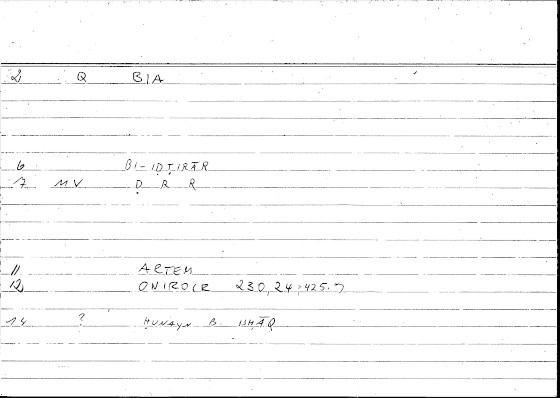 2 Q BIA
6 BI-IḌṬIRĀR
7 MV Ḍ R R
11 ARTEM
12 ONIROCR 230,24;425.7
14 ? ḤUNAYN B. ISḤĀQ